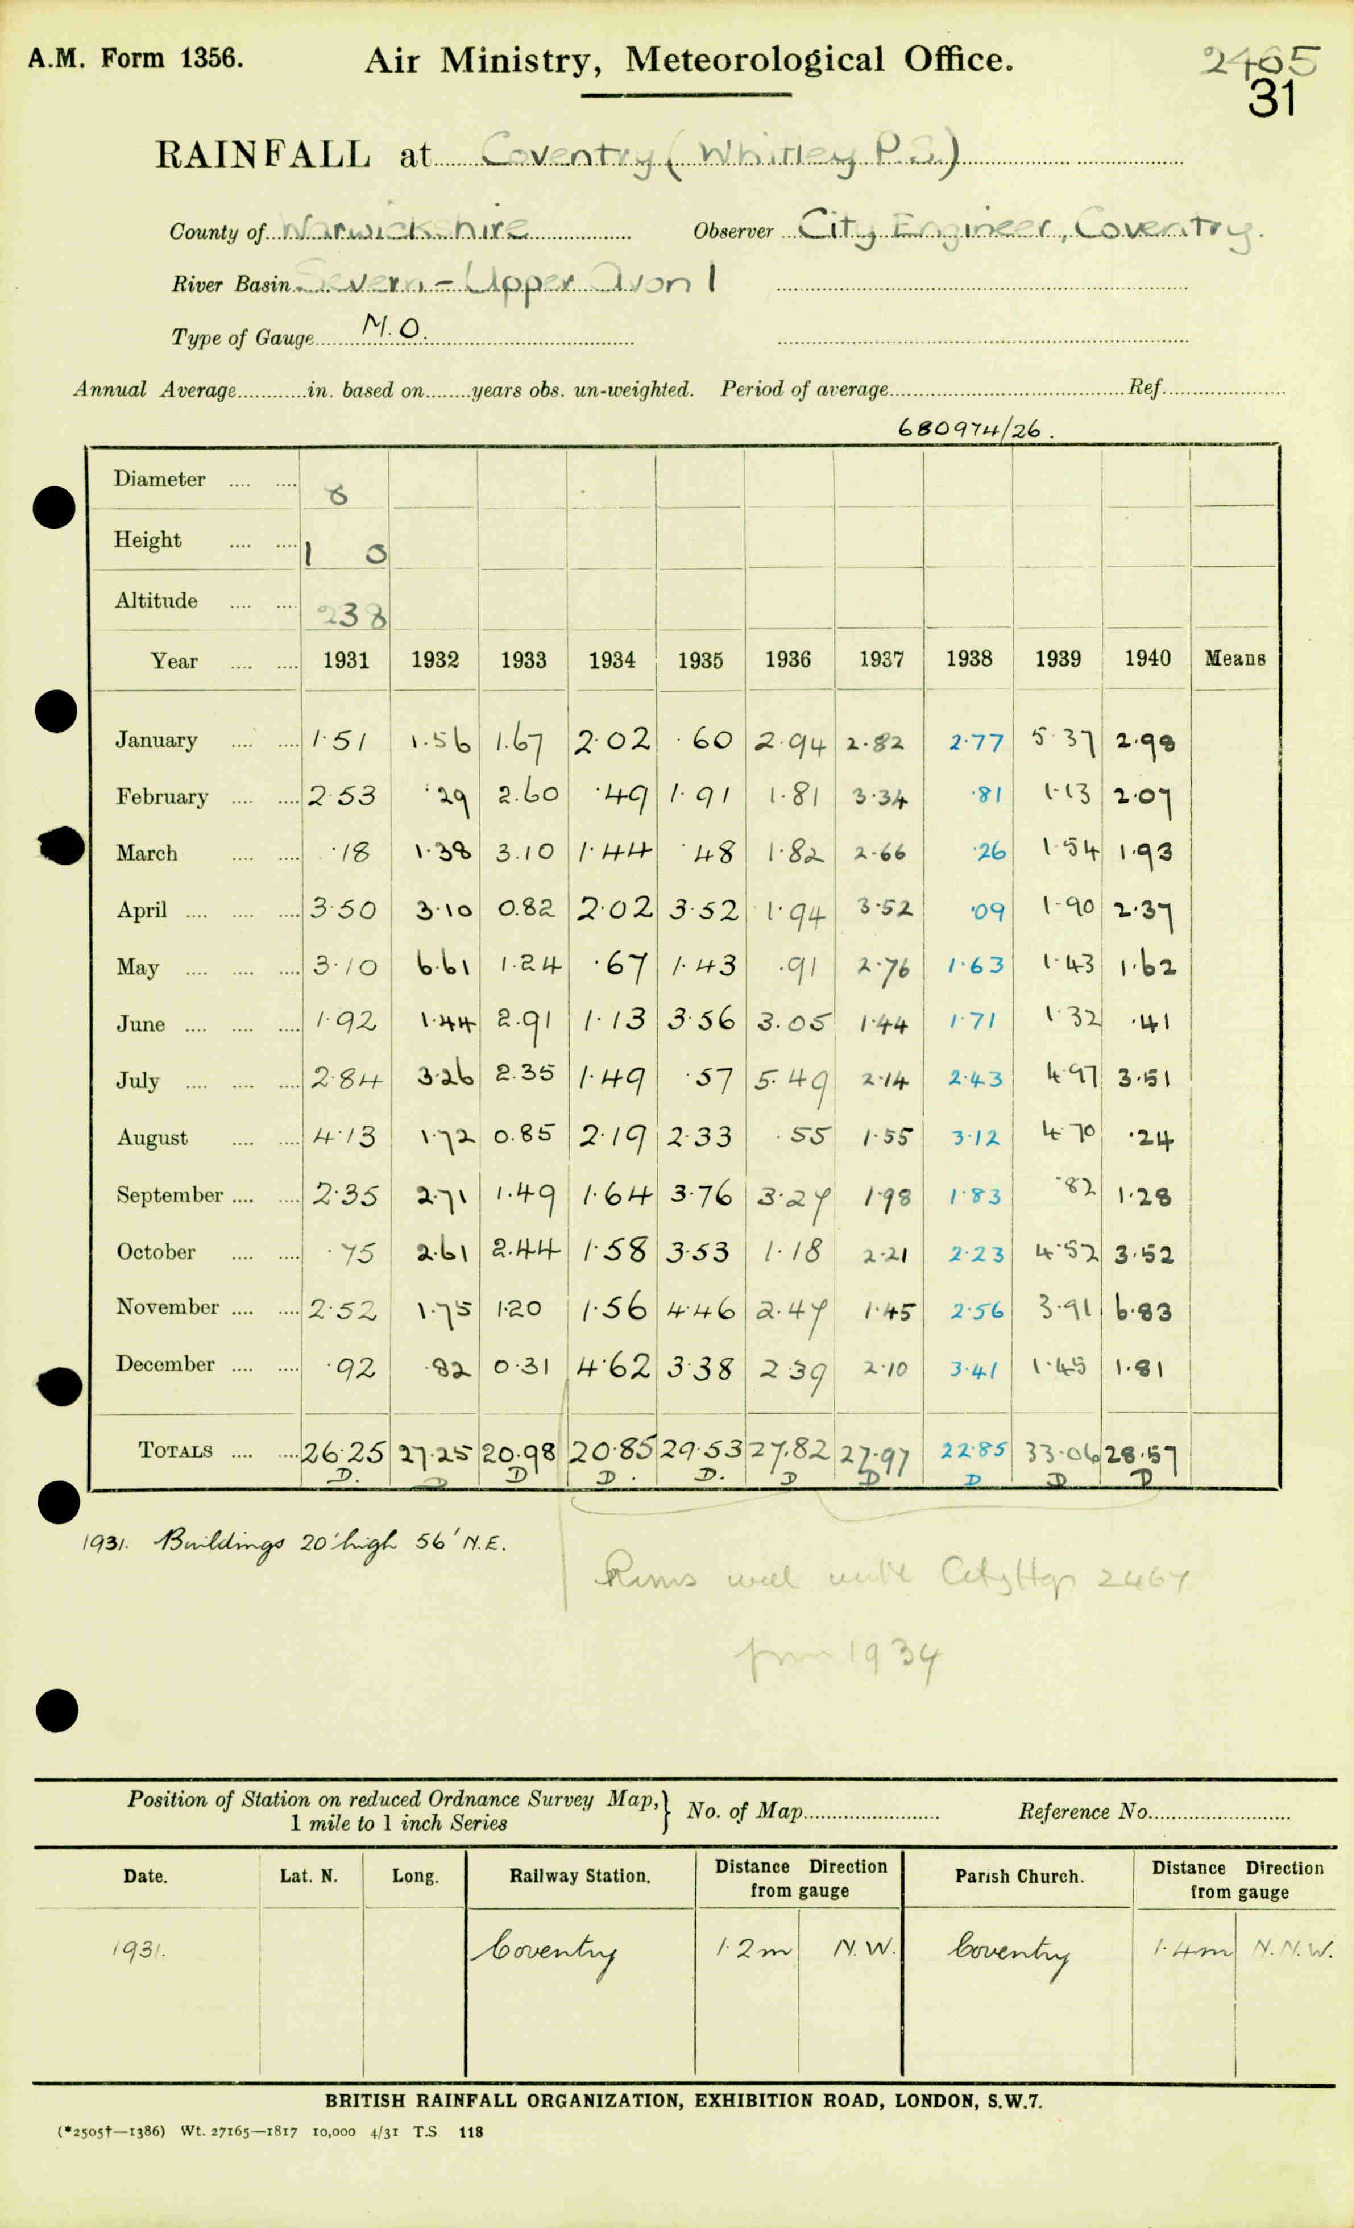 A.M. Form 1356. Air Ministry, Meteorological Office. 2465
31
RAINFALL at Coventry (Whitley P.S.)
County of Warwickshire Observer City Engineer, Coventry.
River Basin Severn - Upper Avon 1
Type of Gauge M.O.
Annual Average in. based on years obs. un-weighted. Period of average Ref.
680974/26.
Diameter 8
Height 1 0
Altitude 238
Year 1931 1932 1933 1934 1935 1936 1937 1938 1939 1940 Means
January 1.51 1.56 1.67 2.02 .60 2.94 2.82 2.77 5.37 2.98
February 2.53 .29 2.60 .49 1.91 1.81 3.34 .81 1.13 2.07
March .18 1.38 3.10 1.44 .48 1.82 2.66 .26 1.54 1.93
April 3.50 3.10 0.82 2.02 3.52 1.94 3.52 .09 1.90 2.37
May 3.10 6.61 1.24 .67 1.43 .91 2.76 1.63 1.43 1.62
June 1.92 1.44 2.91 1.13 3.56 3.05 1.44 1.71 1.32 .41
July 2.84 3.26 2.35 1.49 .57 5.49 2.14 2.43 4.97 3.51
August 4.13 1.72 0.85 2.19 2.33 .55 1.55 3.12 4.70 .24
September 2.35 2.71 1.49 1.64 3.76 3.27 1.98 1.83 .82 1.28
October .75 2.61 2.44 1.58 3.53 1.18 2.21 2.23 4.52 3.52
November 2.52 1.75 1.20 1.56 4.46 2.47 1.45 2.56 3.91 6.83
December .92 .82 0.31 4.62 3.38 2.39 2.10 3.41 1.45 1.81
TOTALS 26.25 27.25 20.98 20.85 29.53 27.82 27.97 22.85 33.06 28.57
D. D D D. D. D D D D D
1931. Buildings 20' high 56' N.E.
Runs well with City Hosp 2467
from 1934
Position of Station on reduced Ordnance Survey Map, } No. of Map Reference No.
1 mile to 1 inch Series
Date. Lat. N. Long. Railway Station. Distance Direction from gauge Parish Church. Distance Direction from gauge
1931. Coventry 1.2m N.W. Coventry 1.4m N.N.W.
BRITISH RAINFALL ORGANIZATION, EXHIBITION ROAD, LONDON, S.W.7.
(*2505†—1386) Wt. 27165—1817 10,000 4/31 T.S 118